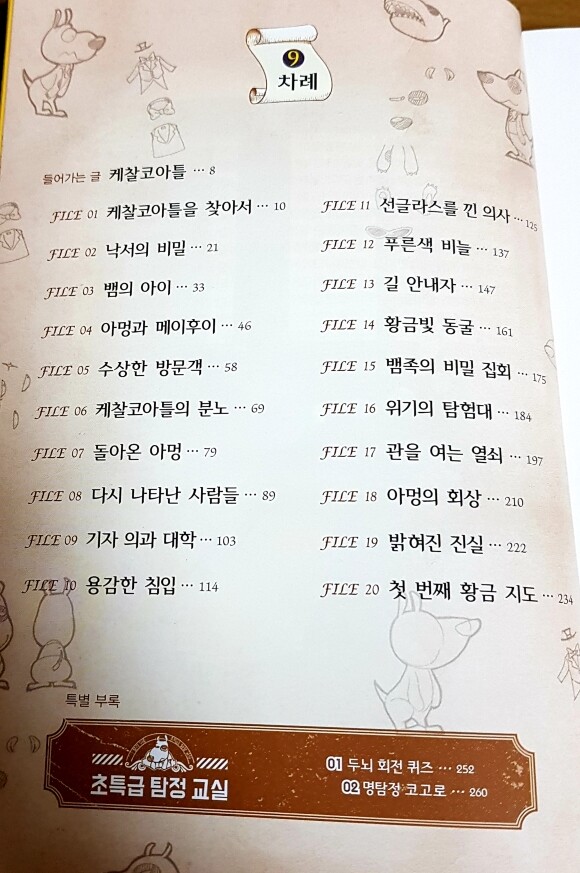 9
차례
들어가는 글 케찰코아틀 … 8
FILE 01 케찰코아틀을 찾아서 … 10
FILE 02 낙서의 비밀 … 21
FILE 03 뱀의 아이 … 33
FILE 04 아멍과 메이후이 … 46
FILE 05 수상한 방문객 … 58
FILE 06 케찰코아틀의 분노 … 69
FILE 07 돌아온 아멍 … 79
FILE 08 다시 나타난 사람들 … 89
FILE 09 기자 의과 대학 … 103
FILE 10 용감한 침입 … 114
FILE 11 선글라스를 낀 의사 … 125
FILE 12 푸른색 비늘 … 137
FILE 13 길 안내자 … 147
FILE 14 황금빛 동굴 … 161
FILE 15 뱀족의 비밀 집회 … 175
FILE 16 위기의 탐험대 … 184
FILE 17 관을 여는 열쇠 … 197
FILE 18 아멍의 회상 … 210
FILE 19 밝혀진 진실 … 222
FILE 20 첫 번째 황금 지도 … 234
특별 부록
초특급 탐정 교실
01 두뇌 회전 퀴즈 … 252
02 명탐정 코고로 … 260